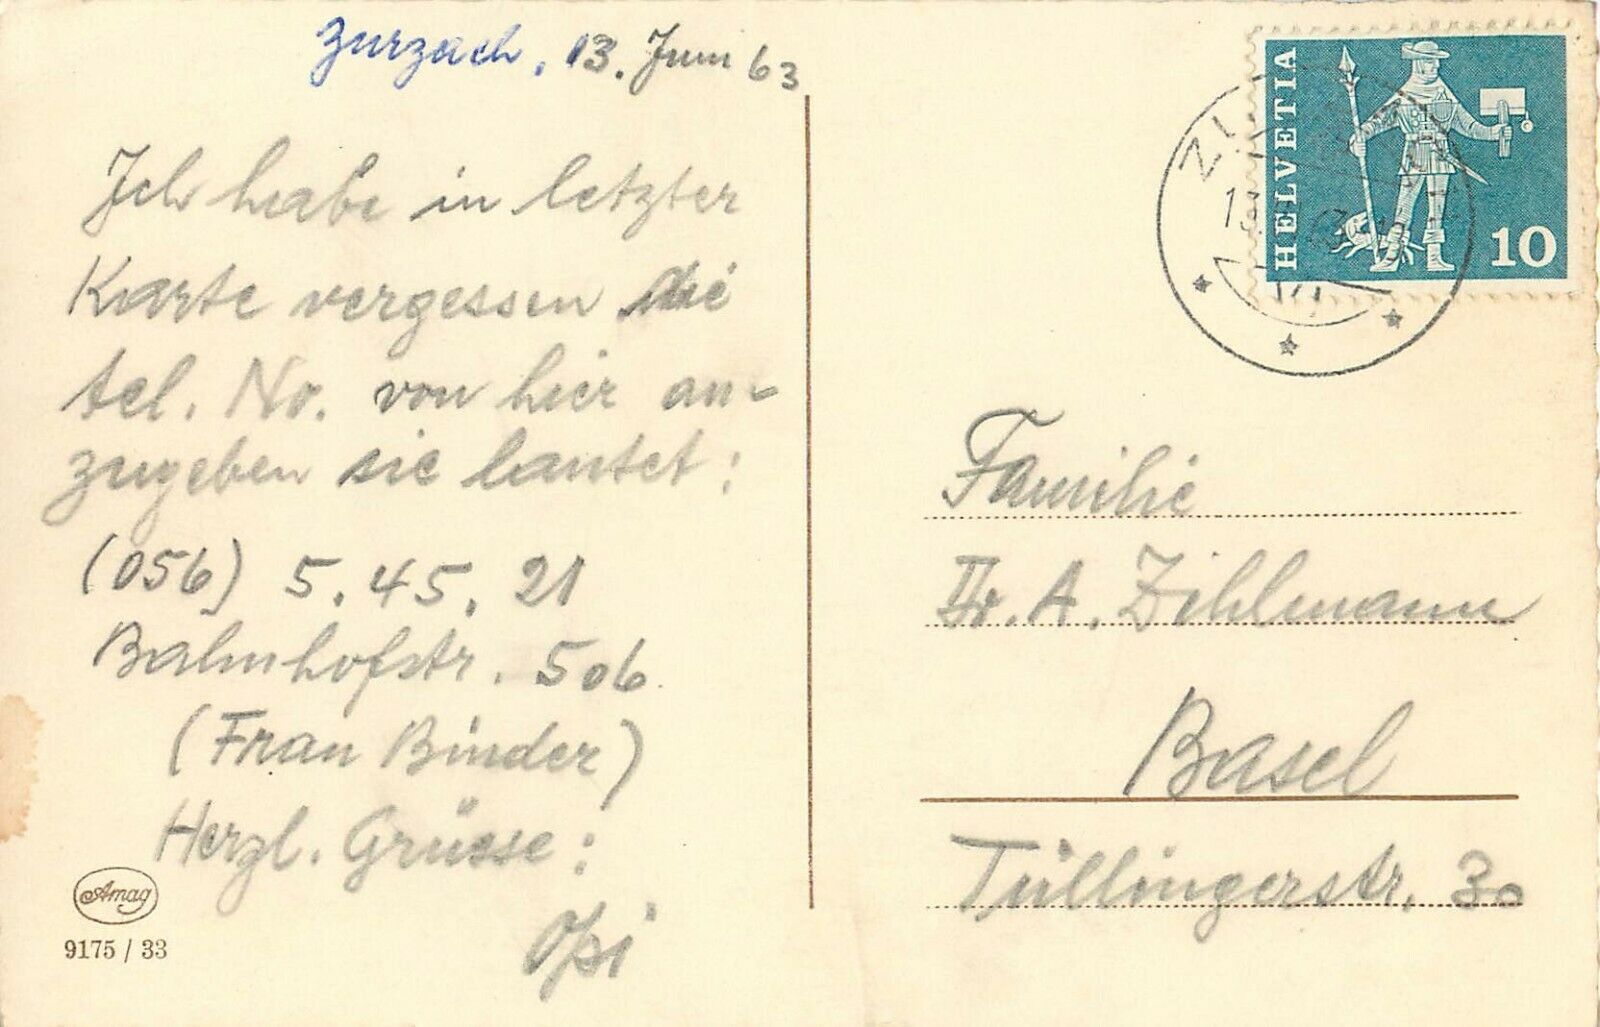 Zurzach, 13. Juni 63
Ich habe in letzter
Karte vergessen die
tel. No. von hier an-
zugeben sie lautet:
(056) 5.45.21
Bahnhofstr. 506
(Frau Binder)
Herzl. Grüsse:
Opi
Amag
9175 / 33
HELVETIA
10
Familie
Dr. A. Zihlmann
Basel
Tüllingerstr. 30